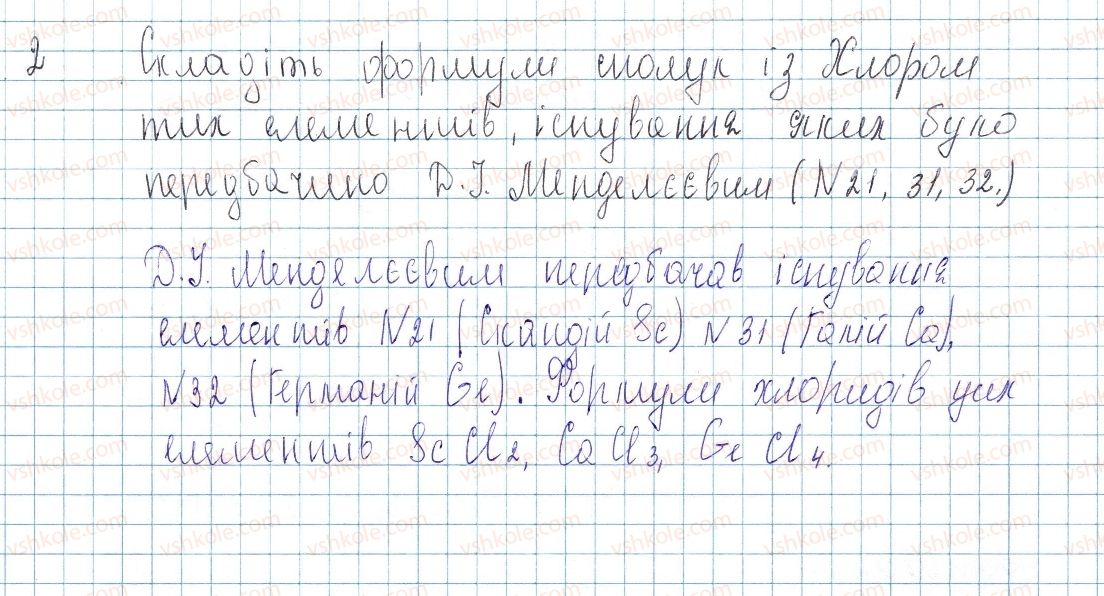 2 Складіть формули сполук із Хлором
тих елементів, існування яких було
передбачено Д.І. Менделєєвим (N21, 31, 32.)
Д.І. Менделєєвим передбачав існування
елементів N21 (Скандій Sc) N31 (Галій Ga),
N32 (Германій Ge). Формули хлоридів цих
елементів ScCl2, GaCl3, GeCl4.